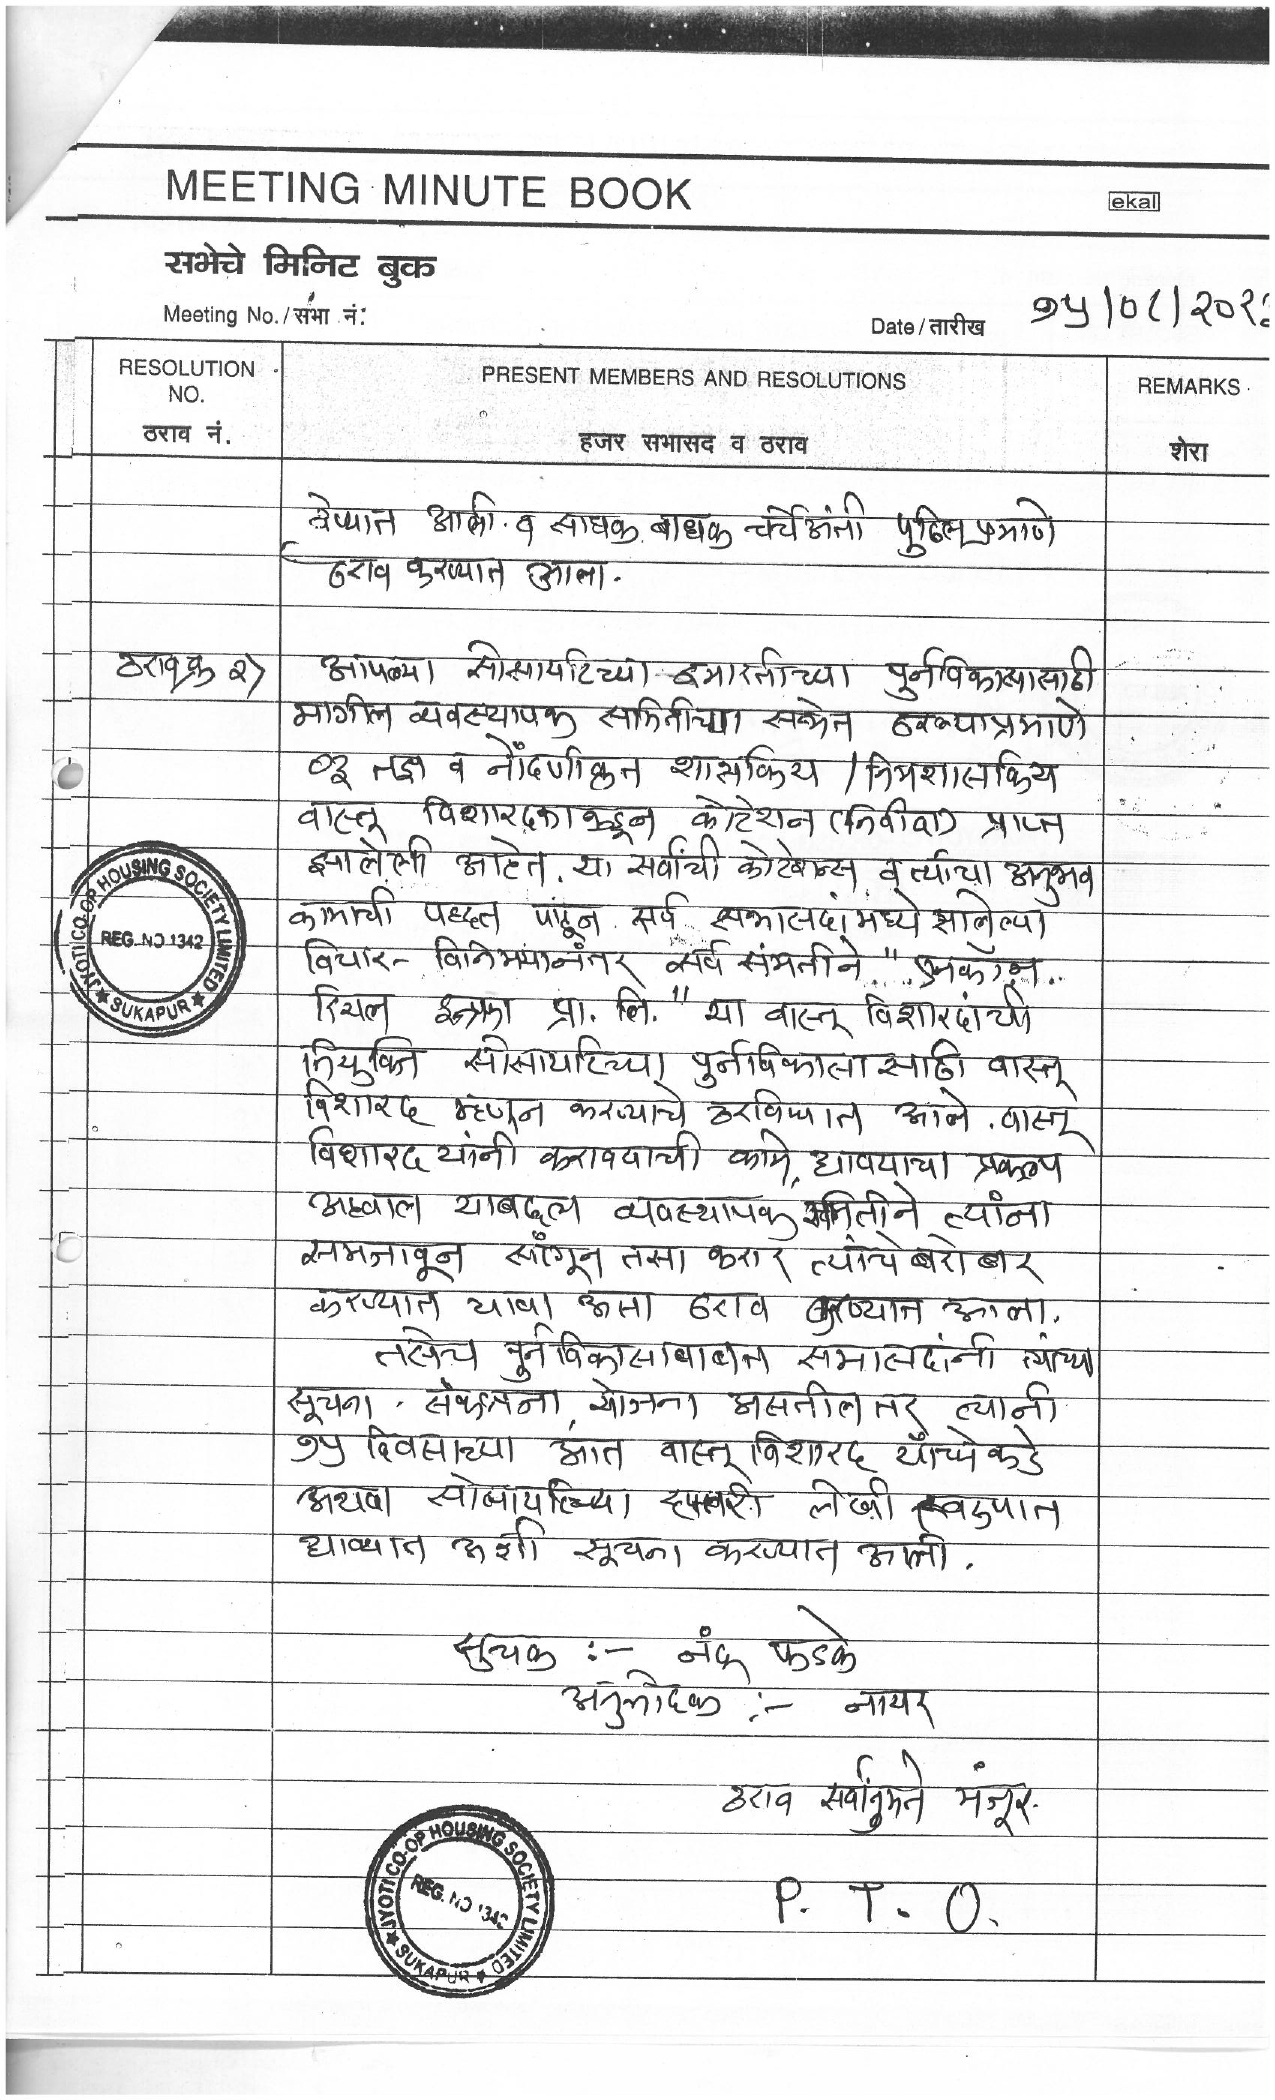 MEETING MINUTE BOOK
ekal
सभेचे मिनिट बुक
Meeting No./संभा नं:
Date/तारीख १५/०८/२०१
RESOLUTION NO.
ठराव नं.
PRESENT MEMBERS AND RESOLUTIONS
हजर सभासद व ठराव
REMARKS
शेरा
घेण्यात आली. व साधक बाधक चर्चेअंती पुढिलप्रमाणे
ठराव करण्यात आला.
ठराव क्र २) आपल्या सोसायटिच्या इमारतीच्या पुर्नविकासासाठी
मागील व्यवस्थापक समितीच्या सभेत ठरल्याप्रमाणे
०३ तज्ञ व नोंदणीकृत शासकिय / निमशासकिय
वास्तू विशारदकाकडून कोटेशन (निवीदा) प्राप्त
झालेली आहेत. या सर्वांची कोटेशन्स व त्यांचा अनुभव
कामाची पध्दत पाहून सर्व सभासदांमध्ये झालेल्या
विचार- विनिमयानंतर सर्व संमतीने "
रियल इन्फ्रा प्रा. लि." या वास्तू विशारदांची
नियुक्ति सोसायटिच्या पुर्नविकासासाठी वास्तू
विशारद म्हणून करण्याचे ठरविण्यात आले. वास्तू
विशारद यांनी करावयाची कामे, द्यावयाचा प्रकल्प
अहवाल याबद्दल व्यवस्थापक समितीने त्यांना
समजावून सांगून तसा करार त्यांचेबरोबर
करण्यात यावा असा ठराव करण्यात आला.
तसेच पुर्नविकासाबाबत सभासदांनी त्यांच्या
सूचना. संकल्पना, योजना असतील तर त्यांनी
१५ दिवसाच्या आत वास्तू विशारद यांच्येकडे
अथवा सोसायटिच्या दप्तरी लेखी स्वरुपात
द्याव्यात अशी सूचना करण्यात आली.
सुचक :- नंदू फडके
अनुमोदक :- नायर
ठराव सर्वानुमते मंजूर.
P. T. O.
JYOTI CO-OP HOUSING SOCIETY LIMITED
REG. NO 1342
SUKAPUR
JYOTI CO-OP HOUSING SOCIETY LIMITED
REG. NO 1342
SUKAPUR